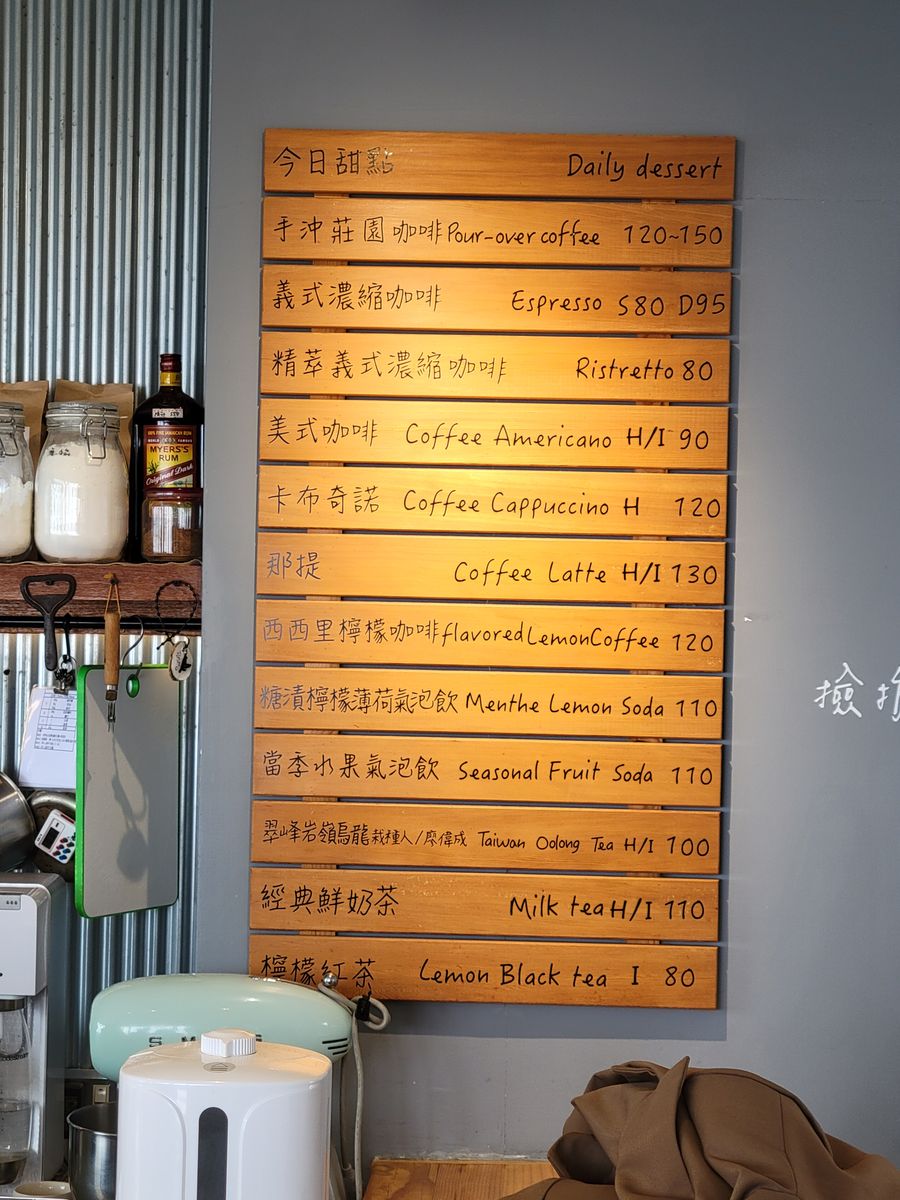 今日甜點 Daily dessert
手沖莊園咖啡 Pour-over coffee 120~150
義式濃縮咖啡 Espresso S80 D95
精萃義式濃縮咖啡 Ristretto 80
美式咖啡 Coffee Americano H/I 90
卡布奇諾 Coffee Cappuccino H 120
那提 Coffee Latte H/I 130
西西里檸檬咖啡 flavored Lemon Coffee 120
糖漬檸檬薄荷氣泡飲 Menthe Lemon Soda 110
當季水果氣泡飲 Seasonal Fruit Soda 110
翠峰岩嶺烏龍 栽種人/廖偉成 Taiwan Oolong Tea H/I 100
經典鮮奶茶 Milk tea H/I 110
檸檬紅茶 Lemon Black tea I 80
100% FINE JAMAICAN RUM
WORLD FAMOUS
MYERS'S
RUM
Original Dark
撿